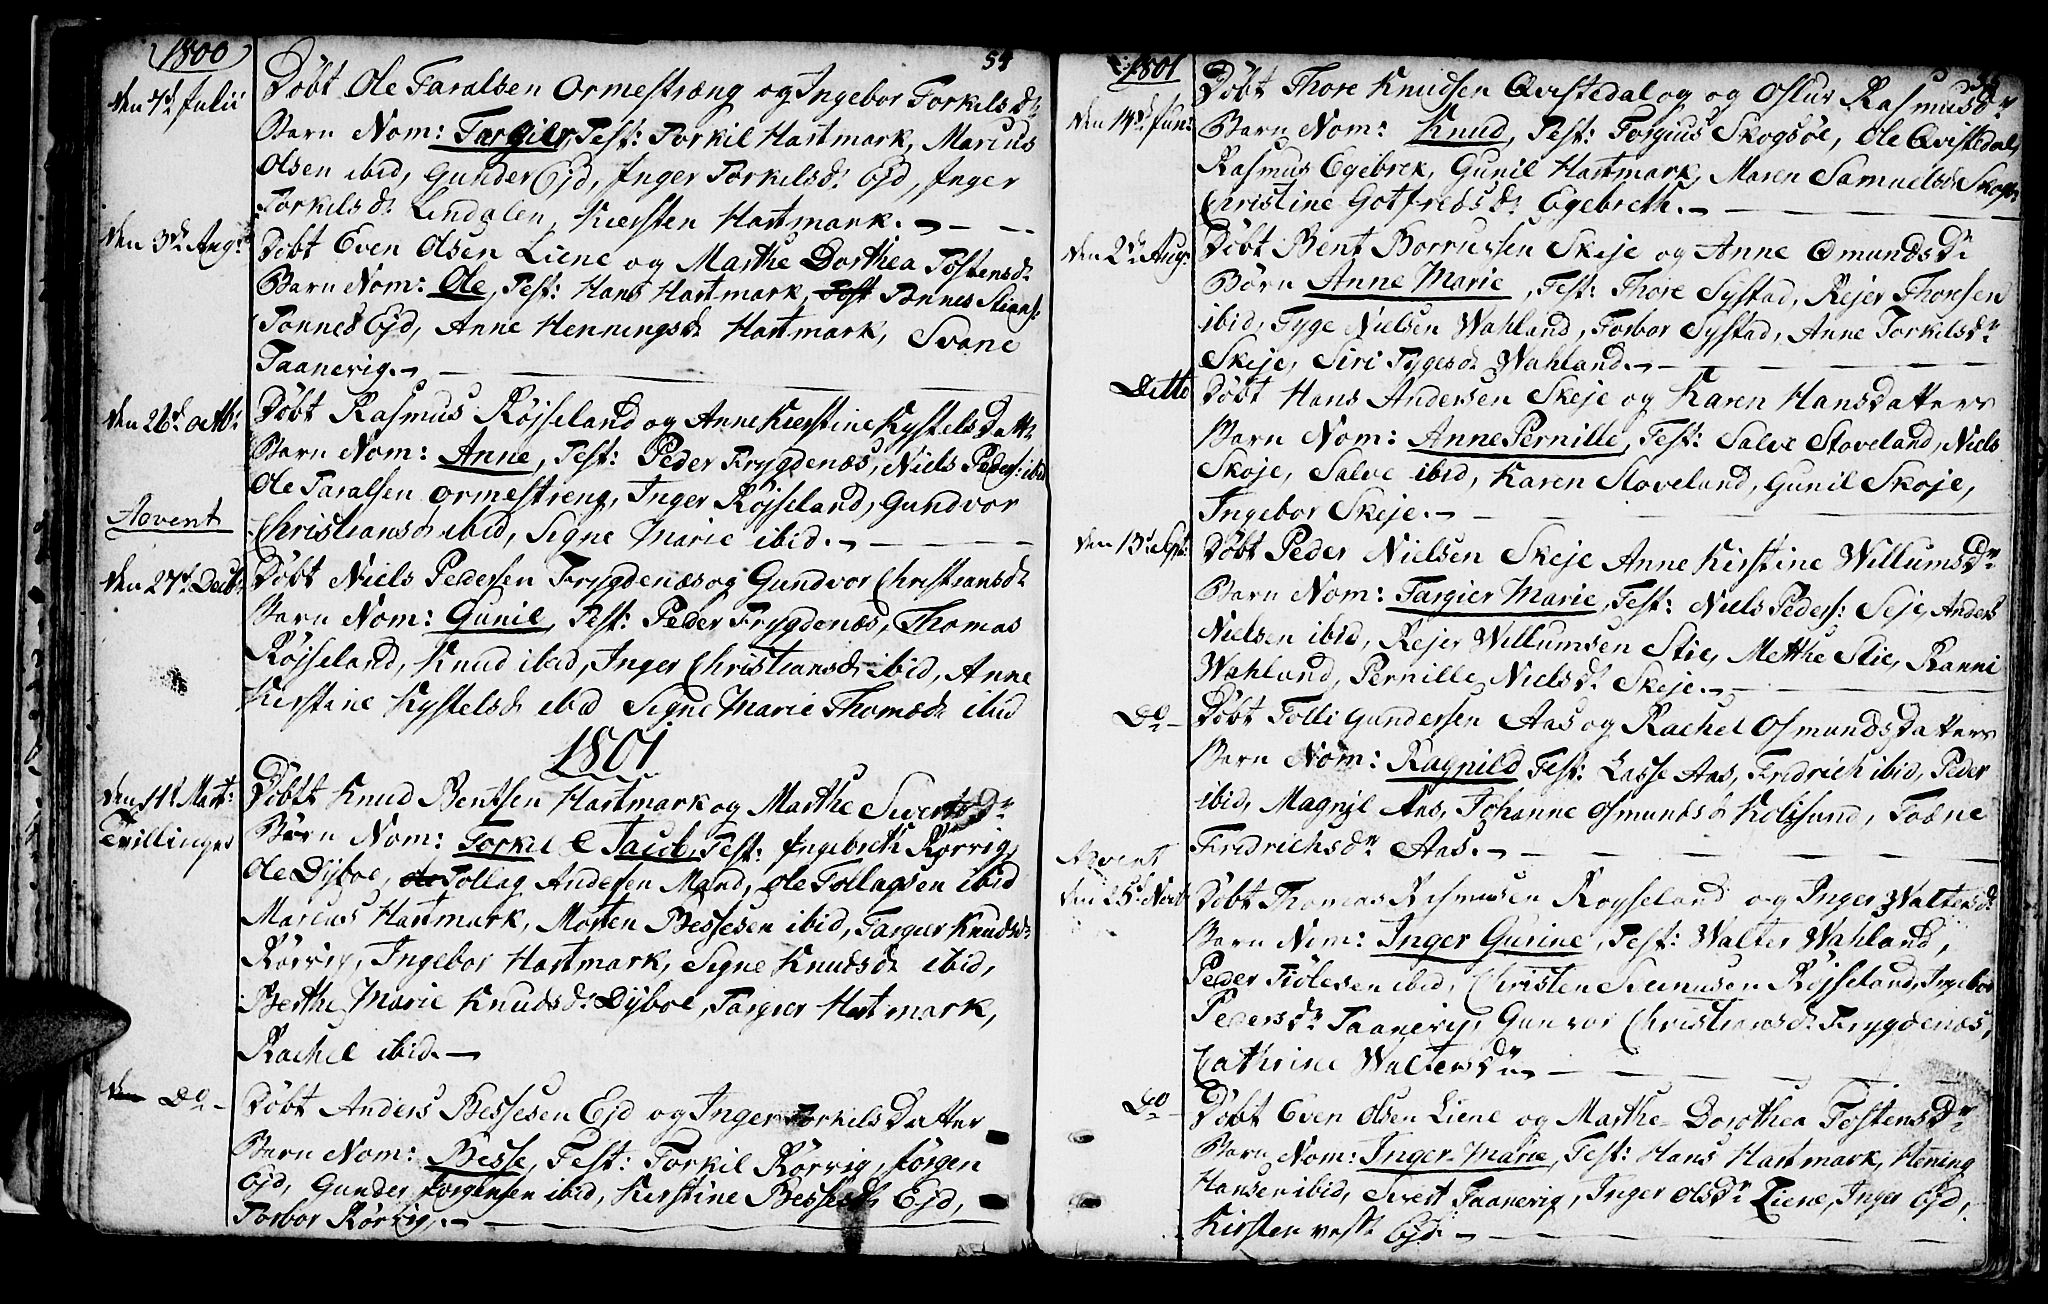 1800
54
den 7d Julii
Døbt Ole Taralsen Ormestræng og Ingebor Torkilsdr
Barn Nom: Targier, Test: Torkil Hartmark, Marcus
Olsen ibid, Gunder Ejd, Inger Torkelsdr Ejd, Inger
Torkilsdr Lindalen, Kiersten Hartmark.
den 3d Augr
Døbt Even Olsen Liene og Marthe Dorthea Tostensdr
Barn Nom: Ole, Test: Hans Hartmark, Tonnes Stians:
Tonnes Ejd, Anne Henningsdr Hartmark, Svane
Taanevig.
den 26d octb:
Døbt Rasmus Röjseland og Anne Kierstine Kystels Dattr
Barn Nom: Anne, Test: Peder Frygdenæs, Niels Peders: ibid
Ole Taralsen Ormestreng, Inger Röjseland, Gundvor
Advent
Christiansdr ibid, Signe Marie ibid.
den 27d Decbr
Døbt Niels Pedersen Frygdenæs og Gundvor Christiansdr
Barn Nom: Gunil, Test: Peder Frygdenæs, Thomas
Röjseland, Knud ibid, Inger Christiansdr ibid, Anne
Kirstine Kystelsdr ibid Signe Marie Thomasdr ibid
1801
den 1t Mart:
Døbt Knud Bentsen Hartmark og Marthe Siverts Dr
Tvillinger
Børn Nom: Torkel & Jacob, Test: Ingebreth Rörvig,
Ole Dÿboe, Tollag Andersen Mand, Ole Tollagsen ibid
Marcus Hartmark, Morten Bessesen ibid, Targier Knudsdr
Rörvig, Ingebor Hartmark, Signe Knudsdr ibid,
Berthe Marie Knudsdr Dÿboe, Targier Hartmark,
Rachel ibid.
Do
Døbt Anders Bessesen Ejd og Inger Torkels Datter
Barn Nom: Besse, Test: Torkil Rörvig, Jörgen
Ejd, Gunder Jörgensen ibid, Kirstine Bessesdr Ejd,
Torbor Rörvig.
1801
den 14d Jun:
Døbt Thore Knudsen Qvistedal og Oslur Rasmusdr
Barn Nom: Knud, Test: Torgius Skogsöe, Ole Qvistedal,
Rasmus Egebrek, Gunil Hartmark, Maren Samuelsdr
Christine Gotfredsdr Egebreth.
den 2d Aug:
Døbt Bent Borrussen Skeje og Anne Omundsdr
Børn Anne Marie, Test: Thore Systad, Rejer Thoresen
ibid, Tyge Nielsen Wahland, Torbor Systad, Anne Torkilsdr
Skeje, Siri Tygesdr Wahland.
Ditto
Døbt Hans Andersen Skeje og Karen Hansdatters
Barn Nom: Anne Pernille, Test: Salve Stoveland, Niels
Skoje, Salve ibid, Karen Stoveland, Gunil Skoje,
Ingebor Skeje.
den 13d Sept:
Døbt Peder Nielsen Skeje Anne Kirstine Willumsdr
Barn Nom: Targier Marie, Test: Niels Peders: Seje, Anders
Nielsen ibid, Rejer Willumsen Stie, Metthe Stie, Ranni
Wahland, Pernille Nielsdr Skeje.
Do
Døbt Tolli Gundersen Aas og Rachel Osmunds Datters
Barn Nom: Ragnild Test: Lasse Aas, Fridrich ibid, Peder
ibid, Magnil Aas, Johanne Osmundsdr Kolisund, Todne
Fredrichsdr Aas.
Advent
den 25d Novb
Døbt Thomas Rasmussen Royseland og Inger Waltersdr
Barn Nom: Inger Gurine, Test: Walter Wahland,
Peder Fiölesen ibid, Christen Röjseland, Ingebor
Pedersdr Taanevig, Gunvor Christiansdr Frygdenæs,
Cathrine Waltersdr
Do
Døbt Even Olsen Liene og Marthe Dorothea Tostens Dr
Barn Nom: Inger Marie, Test: Hans Hartmark, Hening
Hansen ibid, Sivert Taanevig, Inger Olsdr Liene, Inger Ejd,
Kirsten vest Ejd.